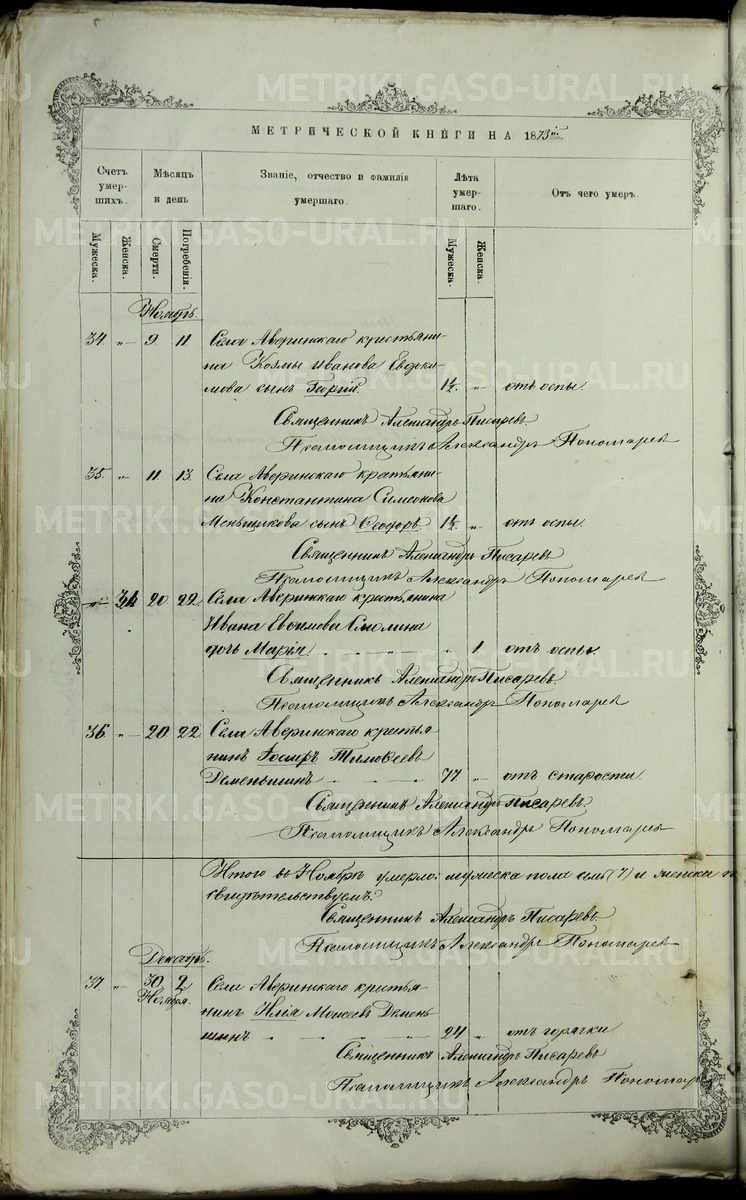 METRIKI.GASO-URAL.RU
МЕТРИЧЕСКОЙ КНИГИ НА 1873й
Счетъ умер-шихъ.
Мѣсяцъ и день
Званіе, отчество и фамилія умершаго.
Лѣта умер-шаго.
Отъ чего умеръ
Мужеска.
Женска.
Смерти.
Погребенія.
Мужеска.
Женска.
Ноябрь.
34 „ 9 11 Села Аверинскаго крестьяни-
на Козмы Иванова Евдоки-
мова сынъ Георгій. 1½. „ отъ оспы.
Священникъ Александръ Писаревъ.
Псаломщикъ Александръ Пономаревъ
35. „ 11 13. Села Аверинскаго крестьяни-
на Константина Симеонова
Меньщикова сынъ Ѳеодоръ 1½. „ отъ оспы.
Священникъ Александръ Писаревъ
Псаломщикъ Александръ Пономаревъ
20 22 Села Аверинскаго крестьянина
Ивана Евѳимова Смолина
дочь Марія „ 1 отъ оспы.
Священникъ Александръ Писаревъ.
Псаломщикъ Александръ Пономаревъ
36. „ 20 22 Села Аверинскаго крестья-
нинъ Іосифъ Тимоѳеевъ
Деменьшинъ 77 „ отъ старости.
Священникъ Александръ Писаревъ.
Псаломщикъ Александръ Пономаревъ
Итого въ Ноябрѣ умерло: мужеска пола семь (7) и женска
свидѣтельствуемъ:
Священникъ Александръ Писаревъ.
Псаломщикъ Александръ Пономаревъ
Декабрь.
37. „ 30 Ноября. 2 Села Аверинскаго крестья-
нинъ Илія Моисеевъ Демень-
шинъ 24 „ отъ горячки
Священникъ Александръ Писаревъ
Псаломщикъ Александръ Пономаревъ